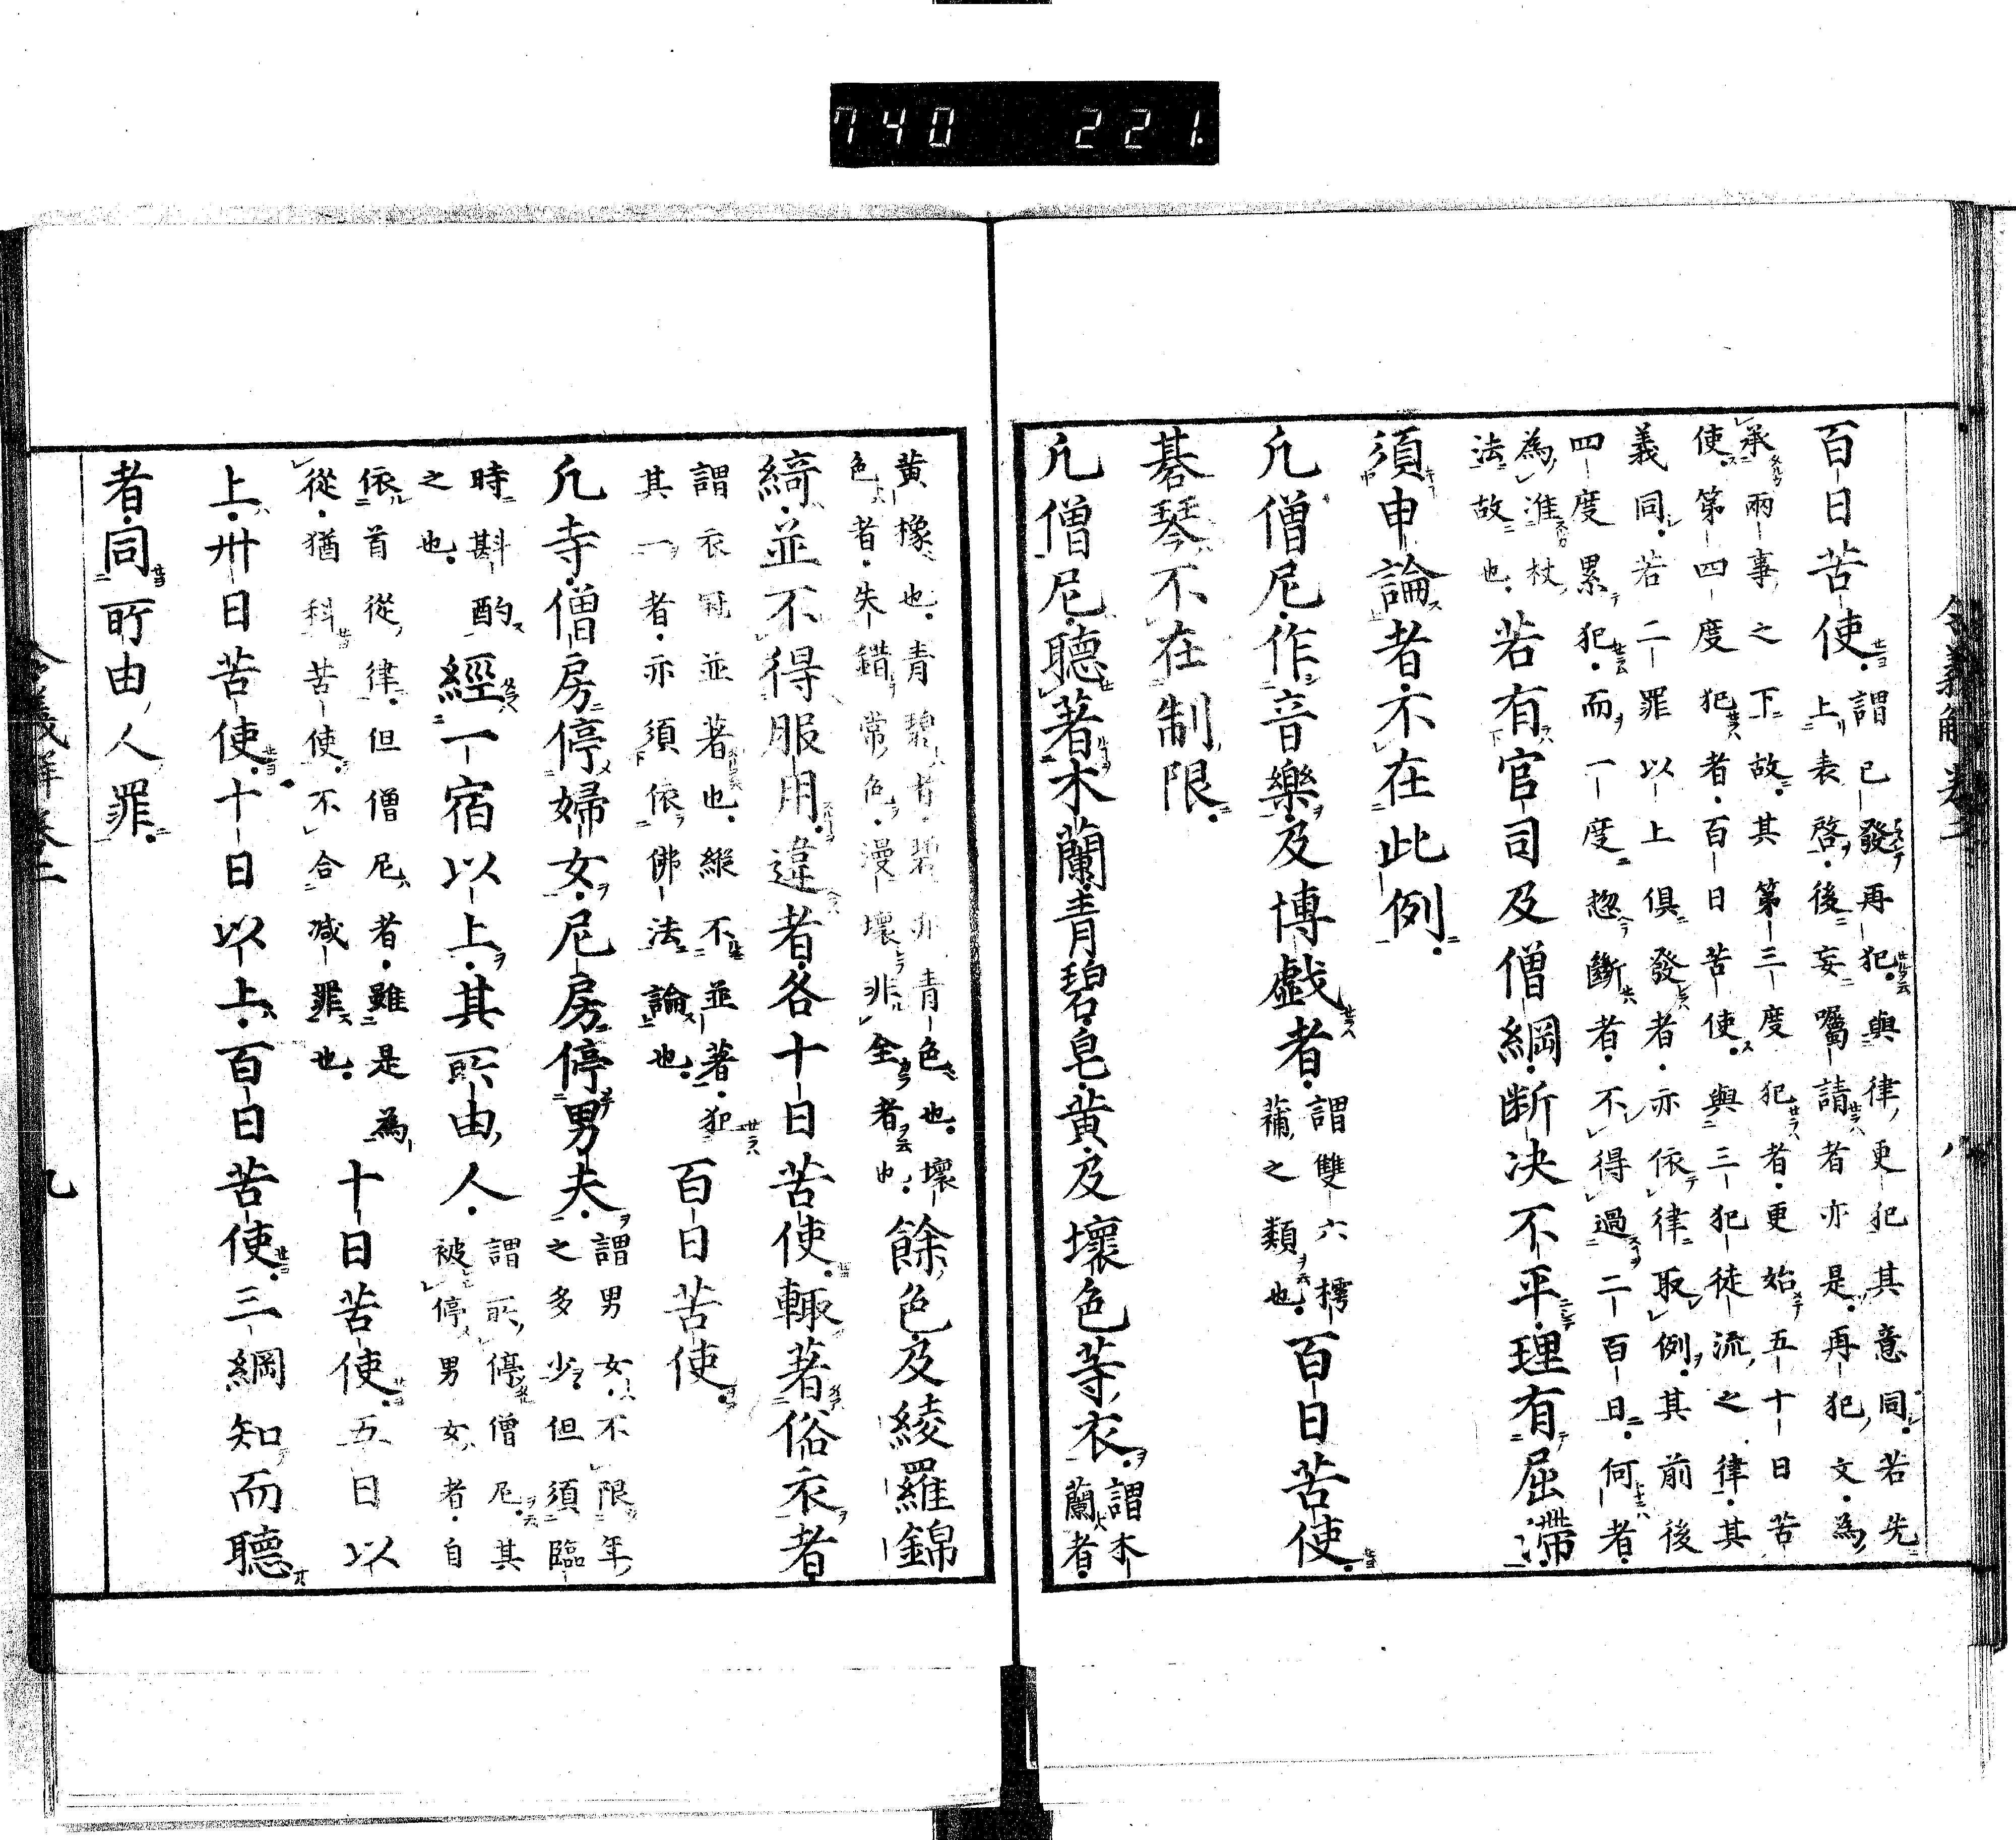 令義解卷二
八
百日苦使。謂已發再犯。與律更犯其意同。若先
上表啓。後妄囑請者亦是。再犯文。為
承兩事之下故。其第三度犯者。更始五十日苦
使。第四度犯者。百日苦使。與三犯徒流之律。其
義同。若二罪以上俱發者。亦依律取例。其前後
四度累犯。而一度惣斷者。不得過二百日。何者。
為准杖
法故也。若有官司及僧綱。断决不平。理有屈滯
須申論者。不在此例。
凡僧尼。作音樂。及博戯者。謂雙六樗
蒲之類也。百日苦使。
碁琴不在制限。
凡僧尼。聽著木蘭青碧皂黄及壞色等衣。謂木
蘭者。
黄橡也。青碧者。碧亦青色也。壞
色者。失錯常色。漫壞非全者也。餘色及綾羅錦
綺。並不得服用。違者各十日苦使。輙著俗衣者
謂衣冠並著也。縱不並著。犯
其一者。亦須依佛法論也。百日苦使。
凡寺僧房停婦女。尼房停男夫。謂男女。不限年
之多少。但須臨
時斟酌
之也。經一宿以上。其所由人。謂所停僧尼。其
被停男女者。自
依首從律。但僧尼者。雖是為
從。猶科苦使。不合减罪也。十日苦使。五日以
上。卅日苦使。十日以上。百日苦使。三綱知而聽
者。同所由人罪。
令義解卷二
九
740 221